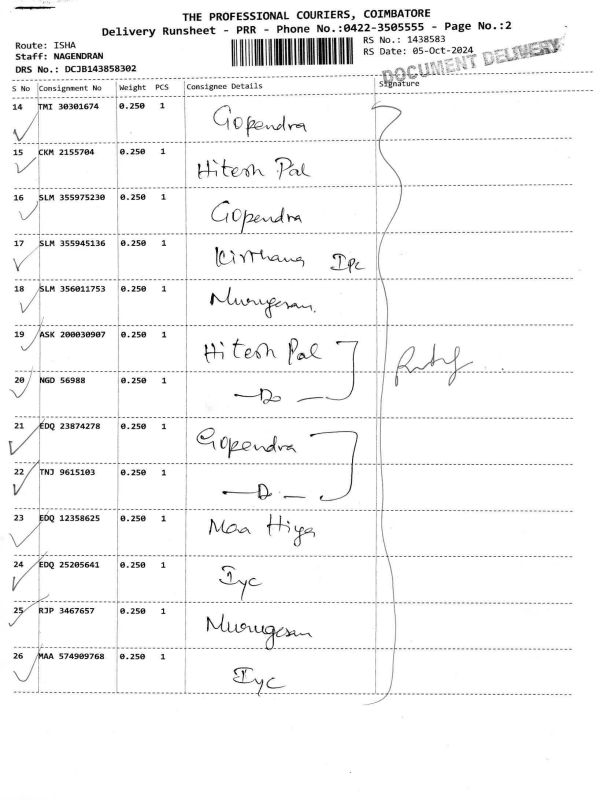 THE PROFESSIONAL COURIERS, COIMBATORE
Delivery Runsheet - PRR - Phone No.:0422-3505555 - Page No.:2
Route: ISHA
Staff: NAGENDRAN
DRS No.: DCJB143858302
RS No.: 1438583
RS Date: 05-Oct-2024
DOCUMENT DELIVERY
S No Consignment No Weight PCS Consignee Details Signature
14 TMI 30301674 0.250 1 Gopendra
15 CKM 2155704 0.250 1 Hitesh Pal
16 SLM 355975230 0.250 1 Gopendra
17 SLM 355945136 0.250 1 Kirthana Ipc
18 SLM 356011753 0.250 1 Murugesan.
19 ASK 200030907 0.250 1 Hitesh Pal
20 NGD 56988 0.250 1 —Do—
21 EDQ 23874278 0.250 1 Gopendra
22 TNJ 9615103 0.250 1 —D.—
23 EDQ 12358625 0.250 1 Maa Hiya
24 EDQ 25205641 0.250 1 Iyc
25 RJP 3467657 0.250 1 Murugesan
26 MAA 574909768 0.250 1 Iyc